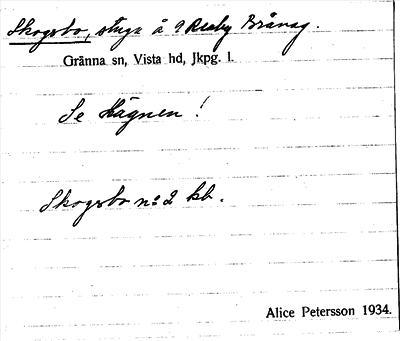 Skogsbo, stuga å Reaby Brånag.
Gränna sn, Vista hd, Jkpg. l.
Se Hägnen!
Skogsbo n:o 2 kb.
Alice Petersson 1934.